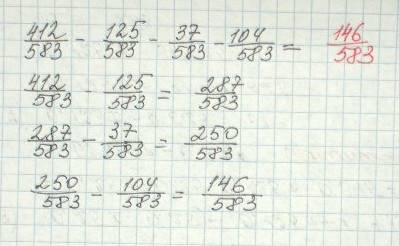 412/583 - 125/583 - 37/583 - 104/583 = 146/583
412/583 - 125/583 = 287/583
287/583 - 37/583 = 250/583
250/583 - 104/583 = 146/583